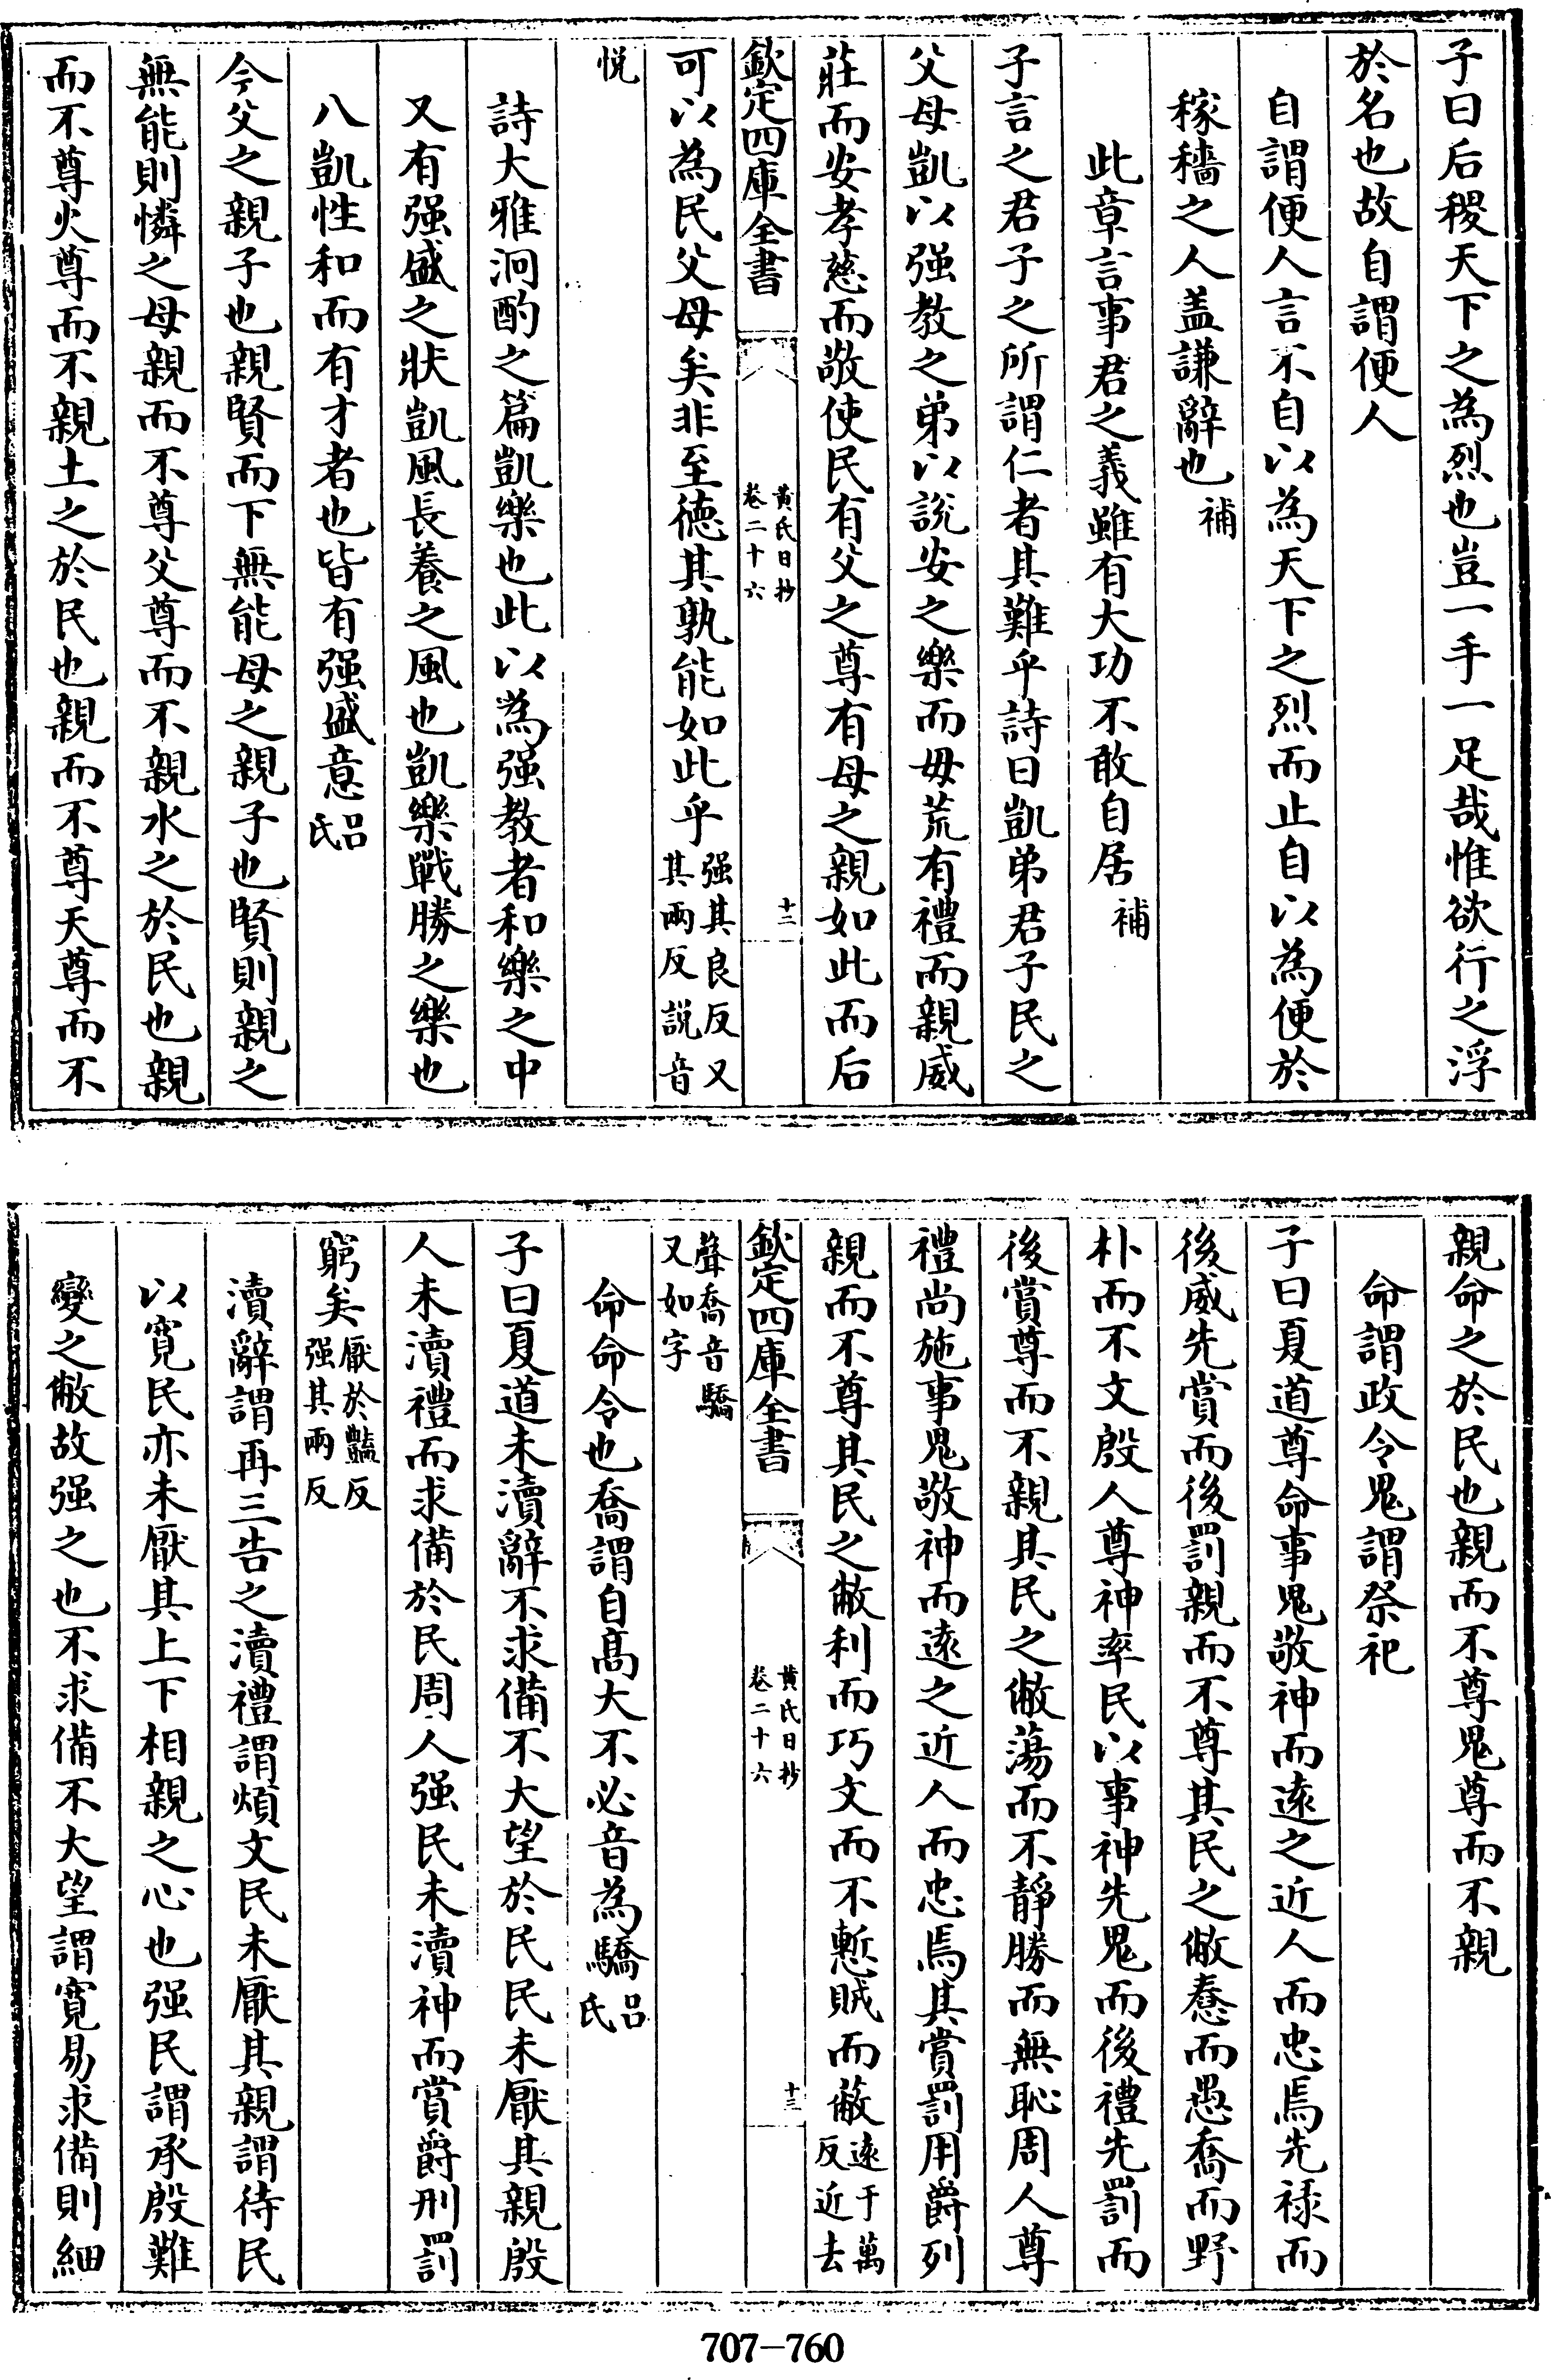 子曰后稷天下之為烈也豈一手一足哉惟欲行之浮
於名也故自謂便人
自謂便人言不自以為天下之烈而止自以為便於
稼穡之人盖謙辭也補
此章言事君之義雖有大功不敢自居補
子言之君子之所謂仁者其難乎詩曰凱弟君子民之
父母凱以强教之弟以說安之樂而毋荒有禮而親威
莊而安孝慈而敬使民有父之尊有母之親如此而后
欽定四庫全書
黄氏日抄
卷二十六
十二
可以為民父母矣非至徳其孰能如此乎强其良反又其兩反説音
悦
詩大雅泂酌之篇凱樂也此以為强教者和樂之中
又有强盛之狀凱風長養之風也凱樂戰勝之樂也
八凱性和而有才者也皆有强盛意呂氏
今父之親子也親賢而下無能母之親子也賢則親之
無能則憐之母親而不尊父尊而不親水之於民也親
而不尊火尊而不親土之於民也親而不尊天尊而不
親命之於民也親而不尊鬼尊而不親
命謂政令鬼謂祭祀
子曰夏道尊命事鬼敬神而逺之近人而忠焉先祿而
後威先賞而後罰親而不尊其民之敝惷而愚喬而野
朴而不文殷人尊神率民以事神先鬼而後禮先罰而
後賞尊而不親其民之敝蕩而不靜勝而無恥周人尊
禮尚施事鬼敬神而逺之近人而忠焉其賞罰用爵列
親而不尊其民之敝利而巧文而不慙賊而蔽逺于萬反近去
欽定四庫全書
黄氏日抄
卷二十六
十三
聲喬音驕又如字
命命令也喬謂自髙大不必音為驕呂氏
子曰夏道未瀆辭不求備不大望於民民未厭其親殷
人未瀆禮而求備於民周人强民未瀆神而賞爵刑罰
窮矣厭於豔反强其兩反
瀆辭謂再三告之瀆禮謂煩文民未厭其親謂待民
以寛民亦未厭其上下相親之心也强民謂承殷難
變之敝故强之也不求備不大望謂寛易求備則細
707-760